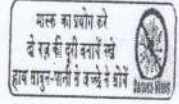 मास्क का प्रयोग करे
दो गज की दूरी बनायें रखे
हाथ साबुन-पानी से अच्छे से धोयें